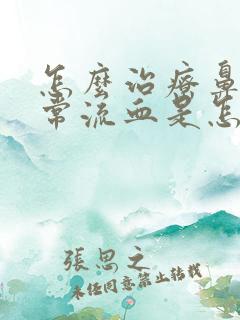 怎麼治療鼻
常流血是怎
張思之
未经同意禁止转载